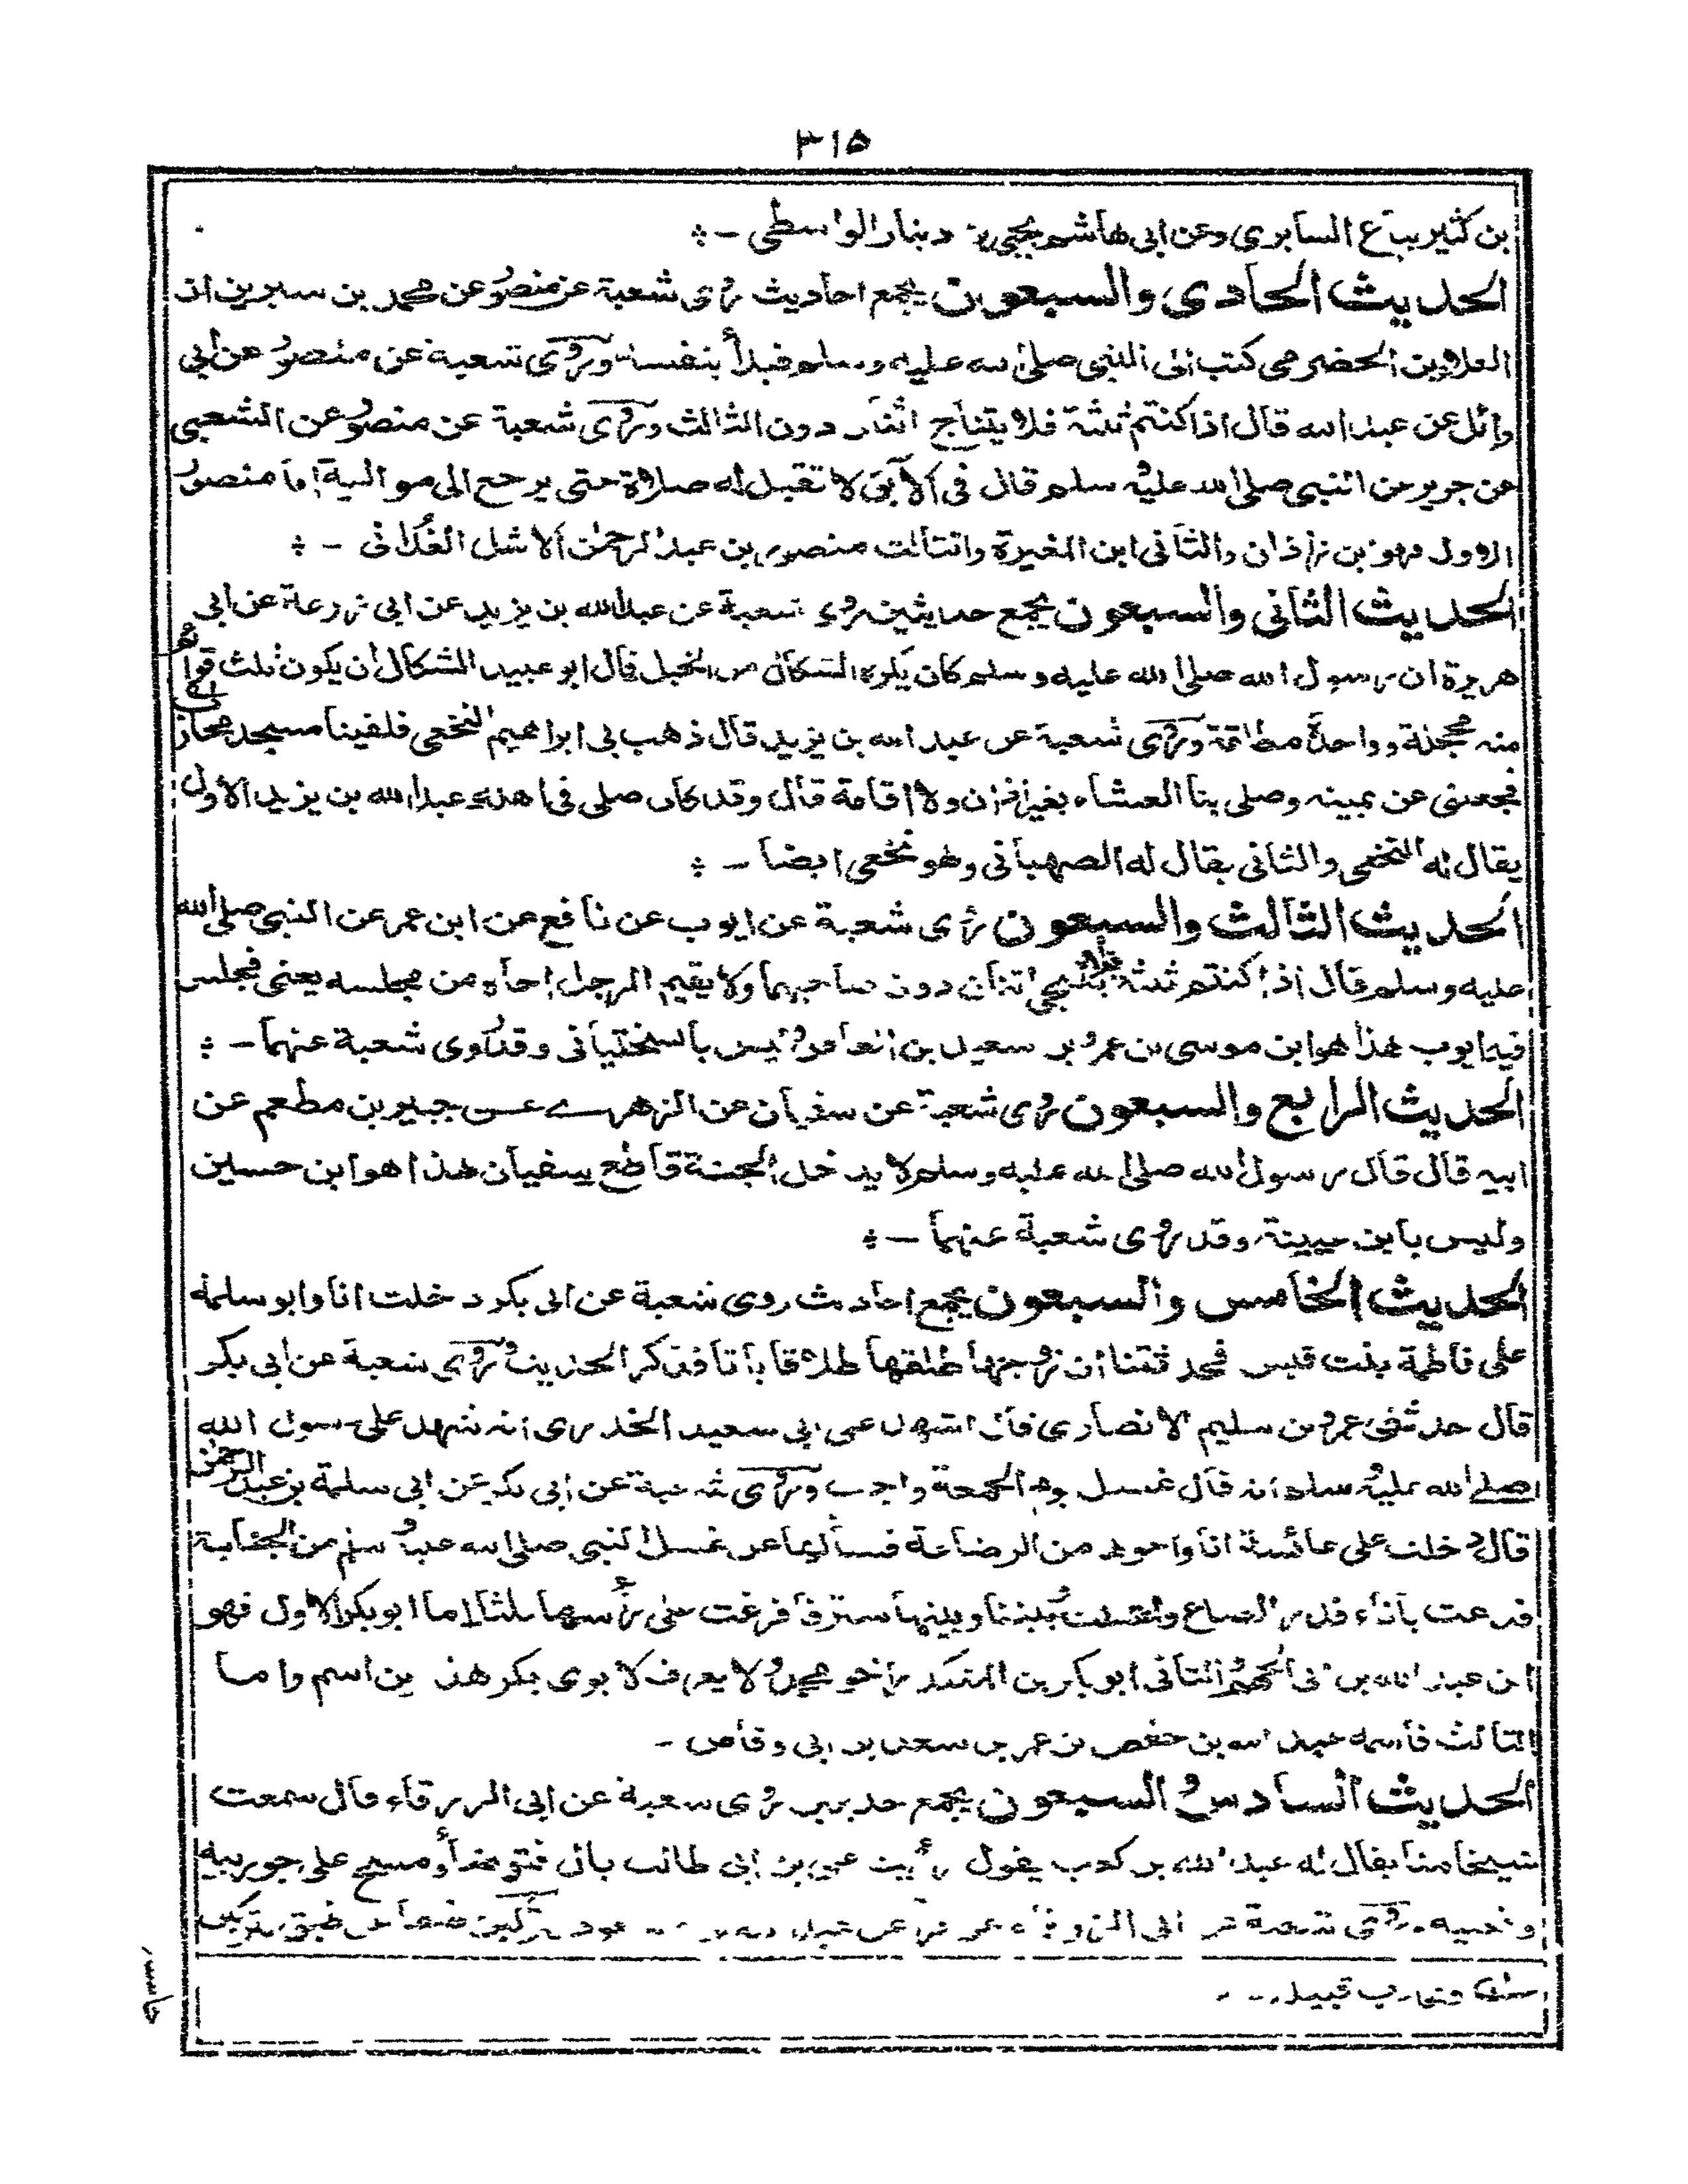 ٣١٥
بن كثير بياع السابري وعن ابی هاشم يحيى بن دينار الواسطى -
الحديث الحادى والسبعون يجمع احاديث روى شعبة عن منصور عن محمد بن سيرين ان
العلاء بن الحضرمى كتب الى النبى صلى الله عليه وسلم فبدأ بنفسه وروى شعبة عن منصور عن ابى
وائل عن عبد الله قال اذا كنتم ثلثة فلا يتناج اثنان دون الثالث وروى شعبة عن منصور عن الشعبى
عن جرير عن النبى صلى الله عليه وسلم قال فى الآبق لا تقبل له صلاة حتى يرجع الى مواليه اما منصور
الاول فهو بن زاذان والثانى ابن المغيرة والثالث منصور بن عبد الرحمن الاشل الغدانى -
الحديث الثانى والسبعون يجمع حديثين روى شعبة عن عبد الله بن يزيد عن ابى زرعة عن ابى
هريرة ان رسول الله صلى الله عليه وسلم كان يكره الشكال من الخيل قال ابو عبيد الشكال ان يكون ثلث قوائم
منه محجلة وواحدة مطلقة وروى شعبة عن عبد الله بن يزيد قال ذهب بى ابراهيم النخعى فلقينا مسجد محارب
فجعلنى عن يمينه وصلى بنا العشاء بغير اذان ولا اقامة قال وقد كان صلى فى اهله عبد الله بن يزيد الاول
يقال له النخعى والثانى يقال له الصهبانى وهو نخعى ايضا -
الحديث الثالث والسبعون روى شعبة عن ايوب عن نافع عن ابن عمر عن النبى صلى الله
عليه وسلم قال اذا كنتم ثلثة فلا يتناجى اثنان دون صاحبهما ولا يقيم الرجل اخاه من مجلسه يعنى فيجلس
فيه ايوب هذا هو ابن موسى بن عمرو بن سعيد بن العاص وليس بالسختيانى وقد روى شعبة عنهما -
الحديث الرابع والسبعون روى شعبة عن سفيان عن الزهرى عن جبير بن مطعم عن
ابيه قال قال رسول الله صلى الله عليه وسلم لا يدخل الجنة قاطع سفيان هذا هو ابن حسين
وليس بابن عيينة وقد روى شعبة عنهما -
الحديث الخامس والسبعون يجمع احاديث روى شعبة عن ابى بكر دخلت انا وابو سلمة
على فاطمة بنت قيس فحدثتنا ان زوجها طلقها طلاقا باتا فذكر الحديث وروى شعبة عن ابى بكر
قال حدثنى عمرو بن سليم الانصارى قال اشهد على ابى سعيد الخدرى انه شهد على رسول الله
صلى الله عليه وسلم انه قال غسل يوم الجمعة واجب وروى شعبة عن ابى بكر عن ابى سلمة بن عبد الرحمن
قال دخلت على عائشة انا واخوها من الرضاعة فسألها عن غسل النبى صلى الله عليه وسلم من الجنابة
فدعت باناء قدر الصاع واغتسلت وبيننا وبينها ستر فأفرغت على رأسها ثلثا اما ابو بكر الاول فهو
ابن عبد الله بن ابى الجهم والثانى ابو بكر بن المنكدر اخو محمد ولا يعرف لابوى بكر هذين اسم واما
الثالث فاسمه عبد الله بن حفص بن عمر بن سعد بن ابى وقاص -
الحديث السادس والسبعون يجمع حديثين روى شعبة عن ابى الورقاء قال سمعت
شيخا منا يقال له عبد الله بن كعب يقول رأيت على بن ابى طالب بال فتوضأ ومسح على جوربيه
ونعليه وروى شعبة عن ابى الزرقاء عن